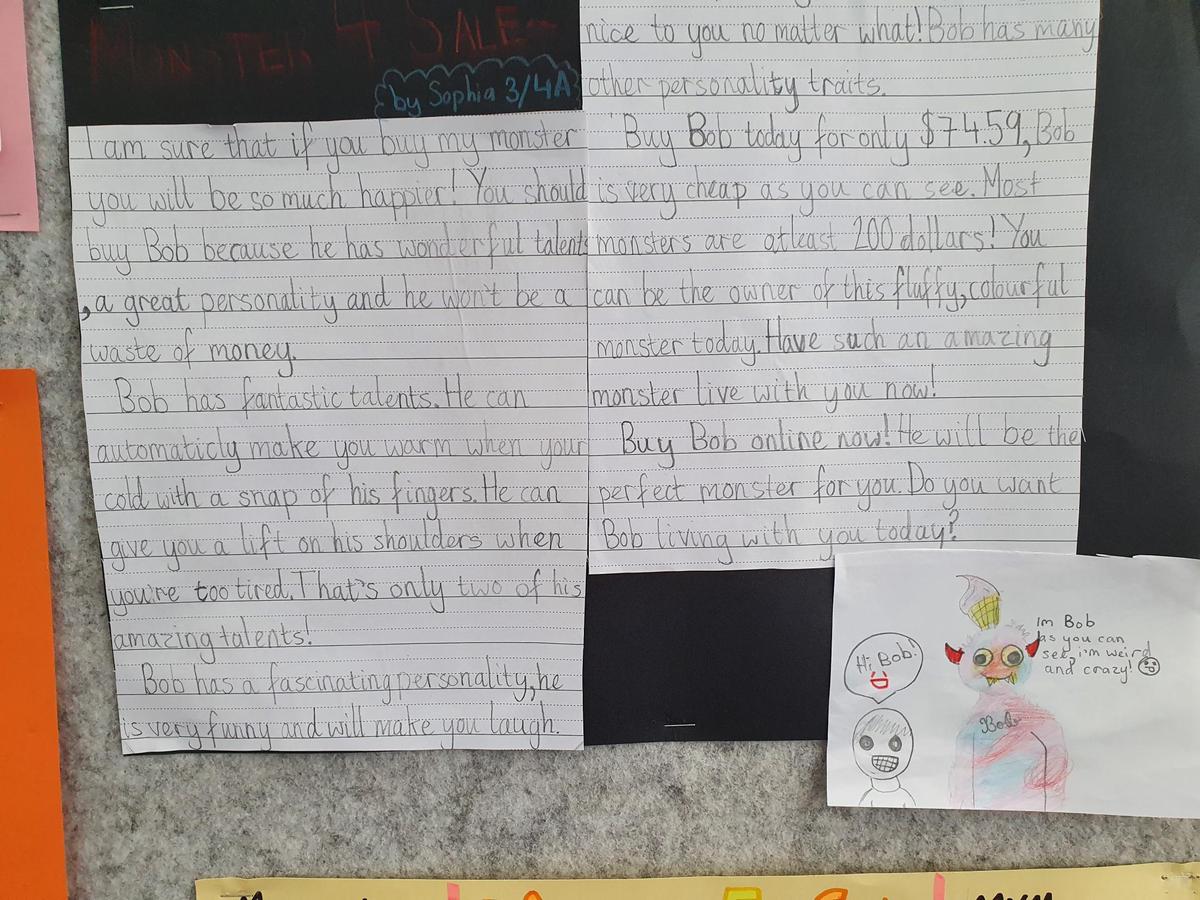 MONSTER 4 SALE
by Sophia 3/4A
I am sure that if you buy my monster
you will be so much happier! You should
buy Bob because he has wonderful talents
, a great personality and he won't be a
waste of money.
Bob has fantastic talents. He can
automaticly make you warm when your
cold with a snap of his fingers. He can
give you a lift on his shoulders when
you're too tired. That's only two of his
amazing talents!
Bob has a fascinating personality, he
is very funny and will make you laugh.
nice to you no matter what! Bob has many
other personality traits.
Buy Bob today for only $74.59, Bob
is very cheap as you can see. Most
monsters are atleast 200 dollars! You
can be the owner of this fluffy, colourful
monster today. Have such an amazing
monster live with you now!
Buy Bob online now! He will be the
perfect monster for you. Do you want
Bob living with you today?
Hi Bob!
Im Bob
as you can
see, i'm weird
and crazy!
Bob